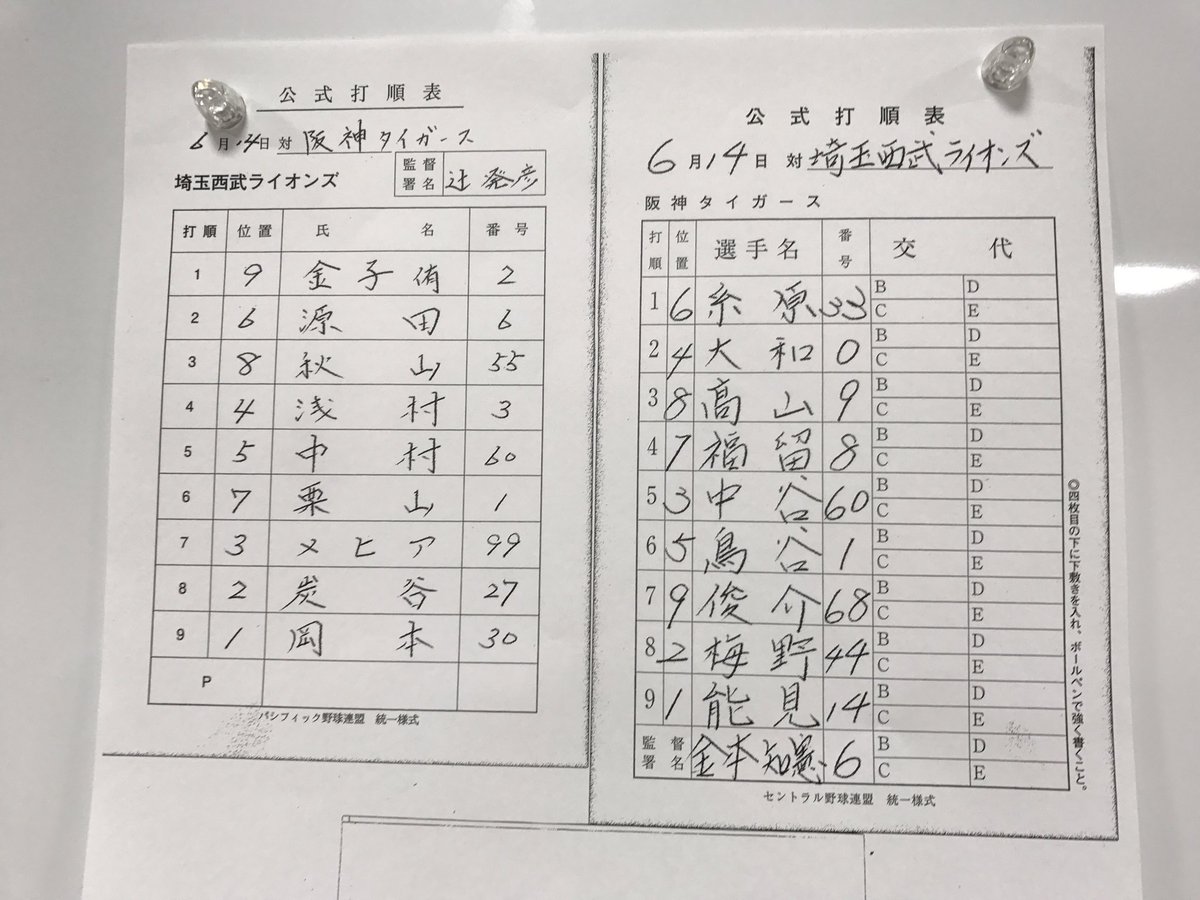 公式打順表
6月14日 対 阪神タイガース
埼玉西武ライオンズ 監督署名 辻発彦
打順 位置 氏名 番号
1 9 金子侑 2
2 6 源田 6
3 8 秋山 55
4 4 浅村 3
5 5 中村 60
6 7 栗山 1
7 3 メヒア 99
8 2 炭谷 27
9 1 岡本 30
P
パシフィック野球連盟 統一様式
公式打順表
6月14日 対 埼玉西武ライオンズ
阪神タイガース
打順 位置 選手名 番号 交代
1 6 糸原 33 B D C E
2 4 大和 0 B D C E
3 8 高山 9 B D C E
4 7 福留 8 B D C E
5 3 中谷 60 B D C E
6 5 鳥谷 1 B D C E
7 9 俊介 68 B D C E
8 2 梅野 44 B D C E
9 1 能見 14 B D C E
監督署名 金本知憲 6 B D C E
セントラル野球連盟 統一様式
◎四枚目の下に下敷きを入れ、ボールペンで強く書くこと。